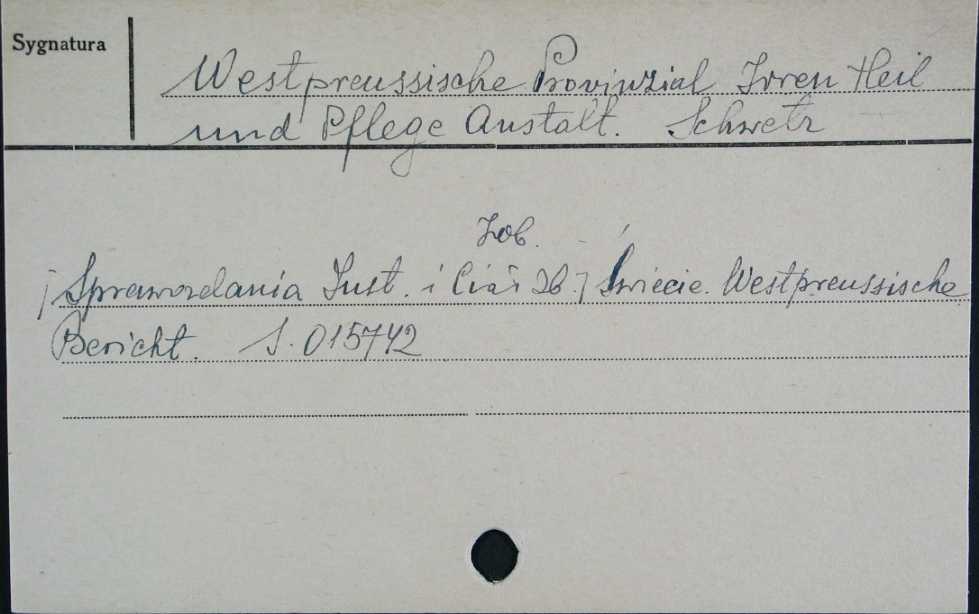 Sygnatura
Westpreussische Provinzial Irren Heil
und Pflege Anstalt. Schwetz
Zob.
/Sprawozdania Inst. i Ciał Zb./ Świecie. Westpreussische
Bericht. S. 015742